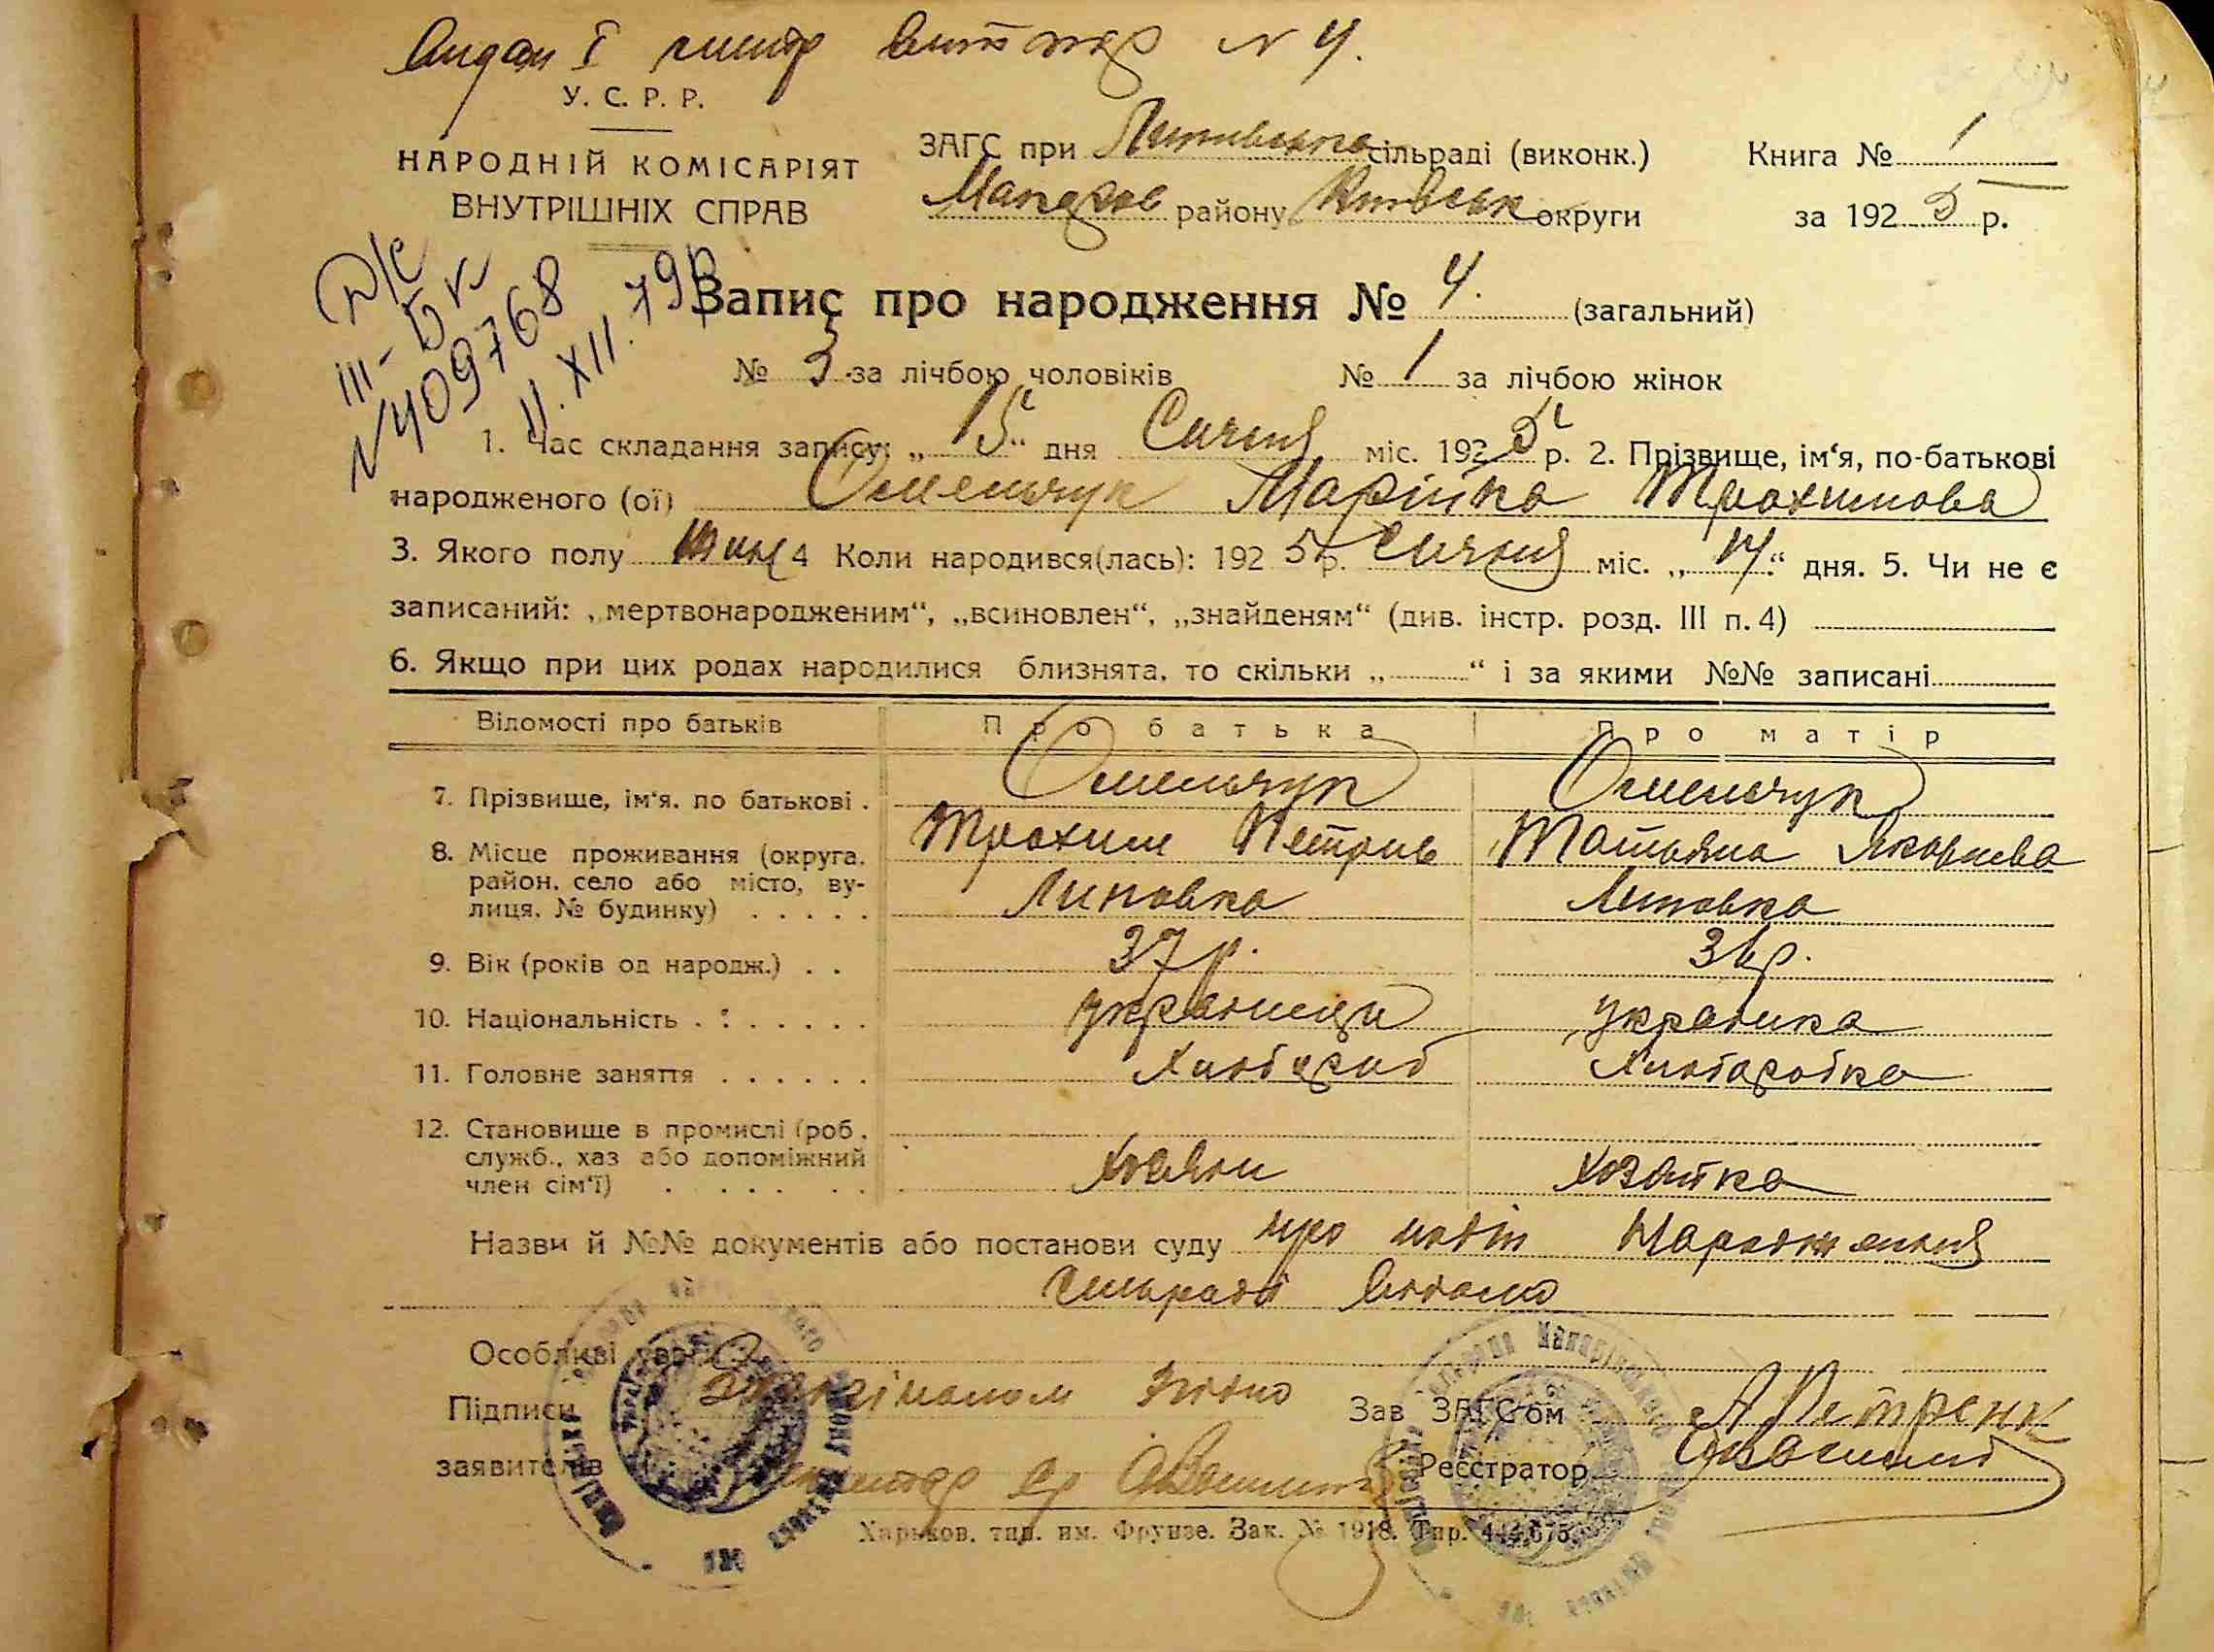 Видан I N 4.
У. С. Р. Р.
НАРОДНІЙ КОМІСАРІЯТ
ВНУТРІШНІХ СПРАВ
ЗАГС при Липивська сільраді (виконк.)
Макаров району Київськ округи
Книга № 1
за 1925 р.
III-БК
N 409768
11. XII. 79р
Запис про народження № 4. (загальний)
№ 3 за лічбою чоловіків № 1 за лічбою жінок
1. Час складання запису: „15“ дня Сичня міс. 1925 р. 2. Прізвище, ім‘я, по-батькові
народженого (ої) Омельчук Марійка Трохимова
3. Якого полу жин 4 Коли народився(лась): 1925 р. Сичня міс. „14“ дня. 5. Чи не є
записаний: „мертвонародженим“, „всиновлен“, „знайденям“ (див. інстр. розд. III п. 4)
6. Якщо при цих родах народилися близнята, то скільки „ “ і за якими №№ записані
Відомості про батьків Про батька Про матір
7. Прізвище, ім‘я. по батькові . Омельчук Омельчук
Трохим Петрив Татьяна
8. Місце проживання (округа, район, село або місто, ву-
лиця, № будинку) . . . . . Липовка Липовка
9. Вік (років од народж.) . . 37 р. 36 р.
10. Національність . . . . . . . украинец украинка
11. Головне заняття . . . . . . Хлибороб Хлиборобка
12. Становище в промислі (роб.
служб., хаз або допоміжний
член сім‘ї) . . . . . . Хозяин Хозяйка
Назви й №№ документів або постанови суду про народження
сильради видомо
Особливі уваги
Підписи З оригіналом згідно Зав ЗАГС‘ом А Петренк
заявителів Реєстратор
Харьков, тип. им. Фрунзе. Зак. № 1918. Тир. 444,675.